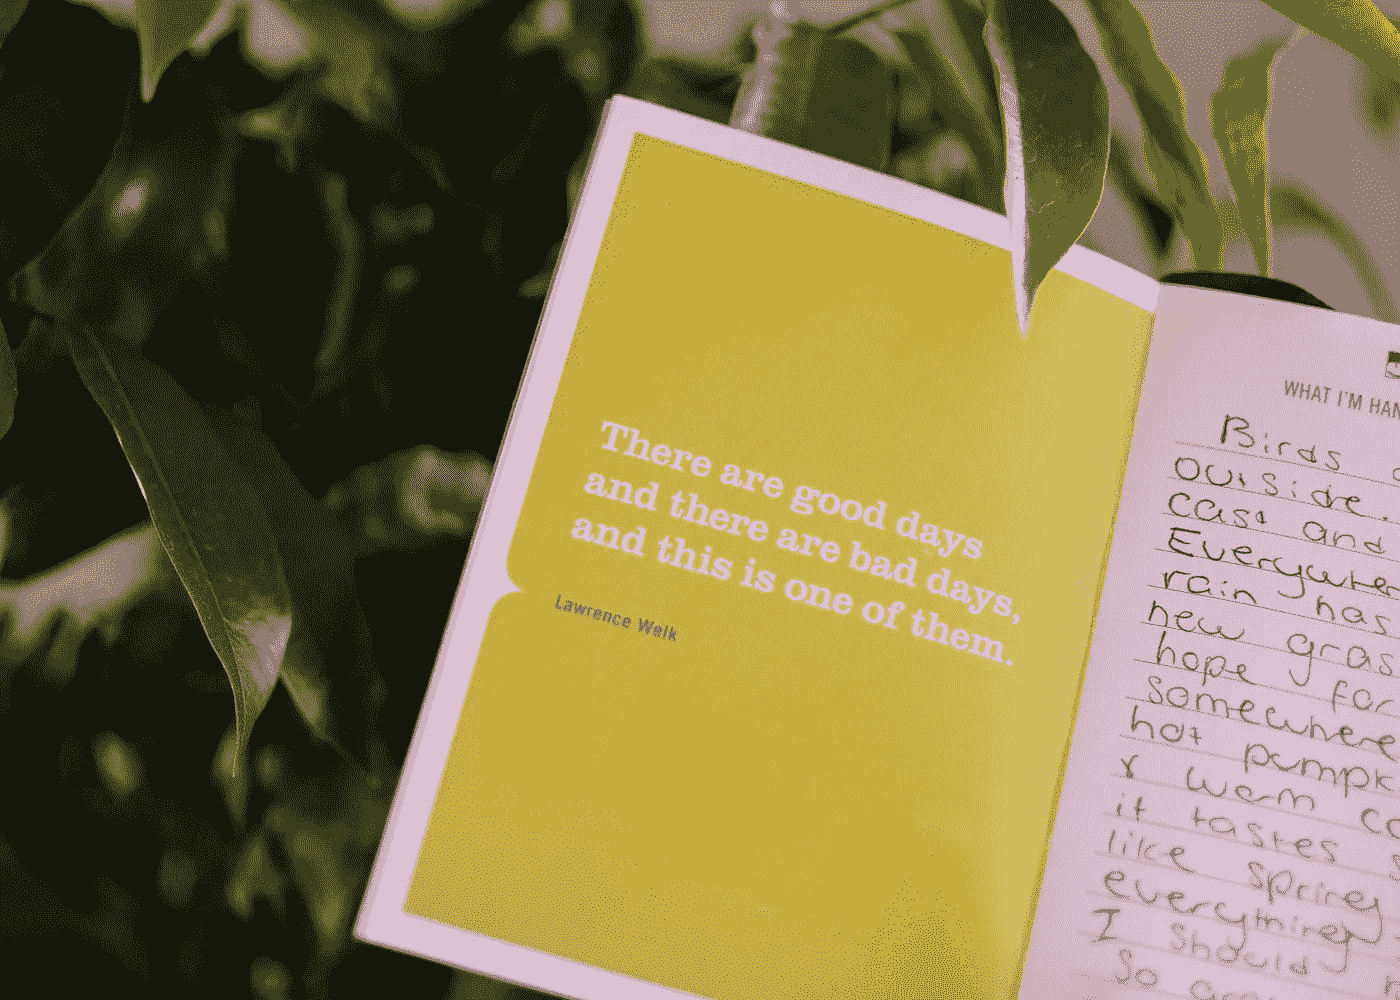 There are good days
and there are bad days,
and this is one of them.
Lawrence Welk
WHAT I'M
Birds
outside.
cast and
rain has
new
hope for
somewhere
hot
r warm
it tastes
like spring
everything
I should
So